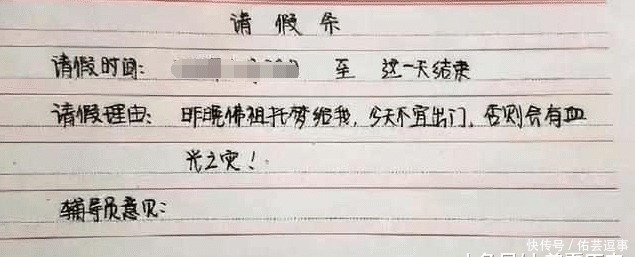 请假条
请假时间： 至 这一天结束
请假理由：昨晚佛祖托梦给我，今天不宜出门，否则会有血
光之灾！
辅导员意见：
快传号/佑芸逗事